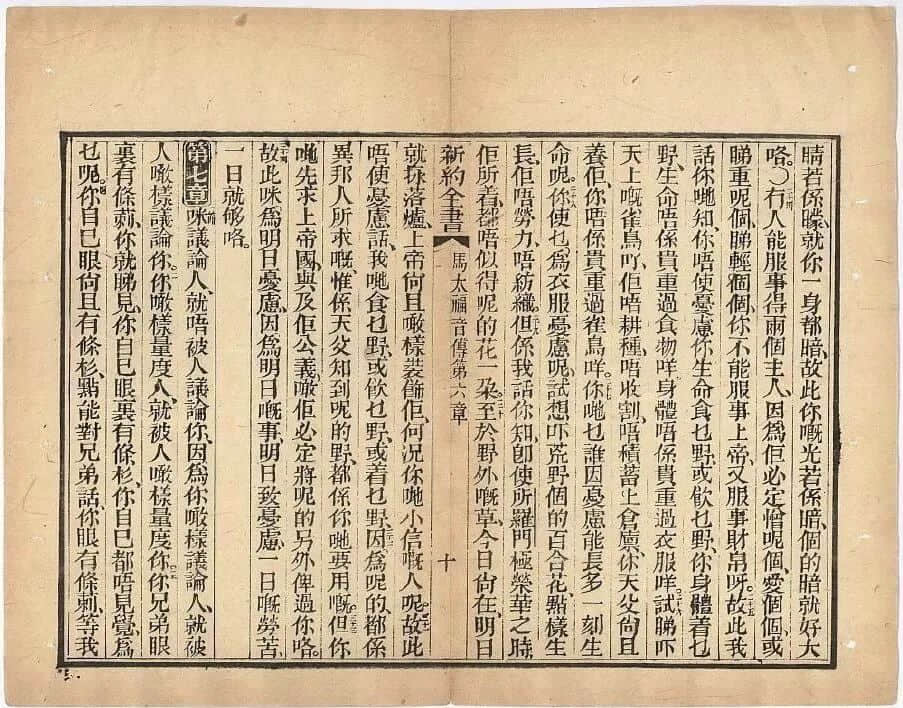 睛若係矇、就你一身都暗、故此你嘅光若係暗、個的暗就好大
咯。○二十四冇人能服事得兩個主人、因為佢必定憎呢個、愛個個、或
睇重呢個、睇輕個個、你不能服事上帝、又服事財帛呀。二十五故此我
話你哋知、你唔使憂慮你生命食乜野、或飲乜野、你身體着乜
野、生命唔係貴重過食物咩、身體唔係貴重過衣服咩。二十六試睇吓
天上嘅雀鳥吖、佢唔耕種、唔收割、唔積蓄上倉廩、你天父尙且
養佢、你唔係貴重過雀鳥咩。二十七你哋乜誰因憂慮能長多一刻生
命呢。二十八你使乜為衣服憂慮呢、試想吓荒野個的百合花、點樣生
長、佢唔勞力、唔紡織。二十九但係我話你知、卽使所羅門極榮華之時、
佢所着都唔似得呢的花一朶。三十至於野外嘅草、今日尙在、明日
新約全書 馬太福音傳第六章 十
就落爐、上帝尙且噉樣裝飾佢、何況你哋小信嘅人呢。三十一故此
唔使憂慮話、我哋食乜野、或飲乜野、或着乜野。三十二因為呢的、都係
異邦人所求嘅、惟係天父知到呢的野、都係你哋要用嘅。三十三但你
哋先求上帝國、與及佢公義、噉佢必定將呢的另外俾過你咯。
三十四故此咪為明日憂慮、因為明日嘅事、明日致憂慮、一日嘅勞苦、
一日就够咯。
第七章 一節咪議論人、就唔被人議論你、二因為你噉樣議論人、就被
人噉樣議論你、你噉樣量度人、就被人噉樣量度你、三你兄弟眼
裏有條莿、你就睇見、你自己眼裏有條杉、你自己都唔見覺、為
乜呢。四你自己眼尙且有條杉、點能對兄弟話、你眼有條莿、等我